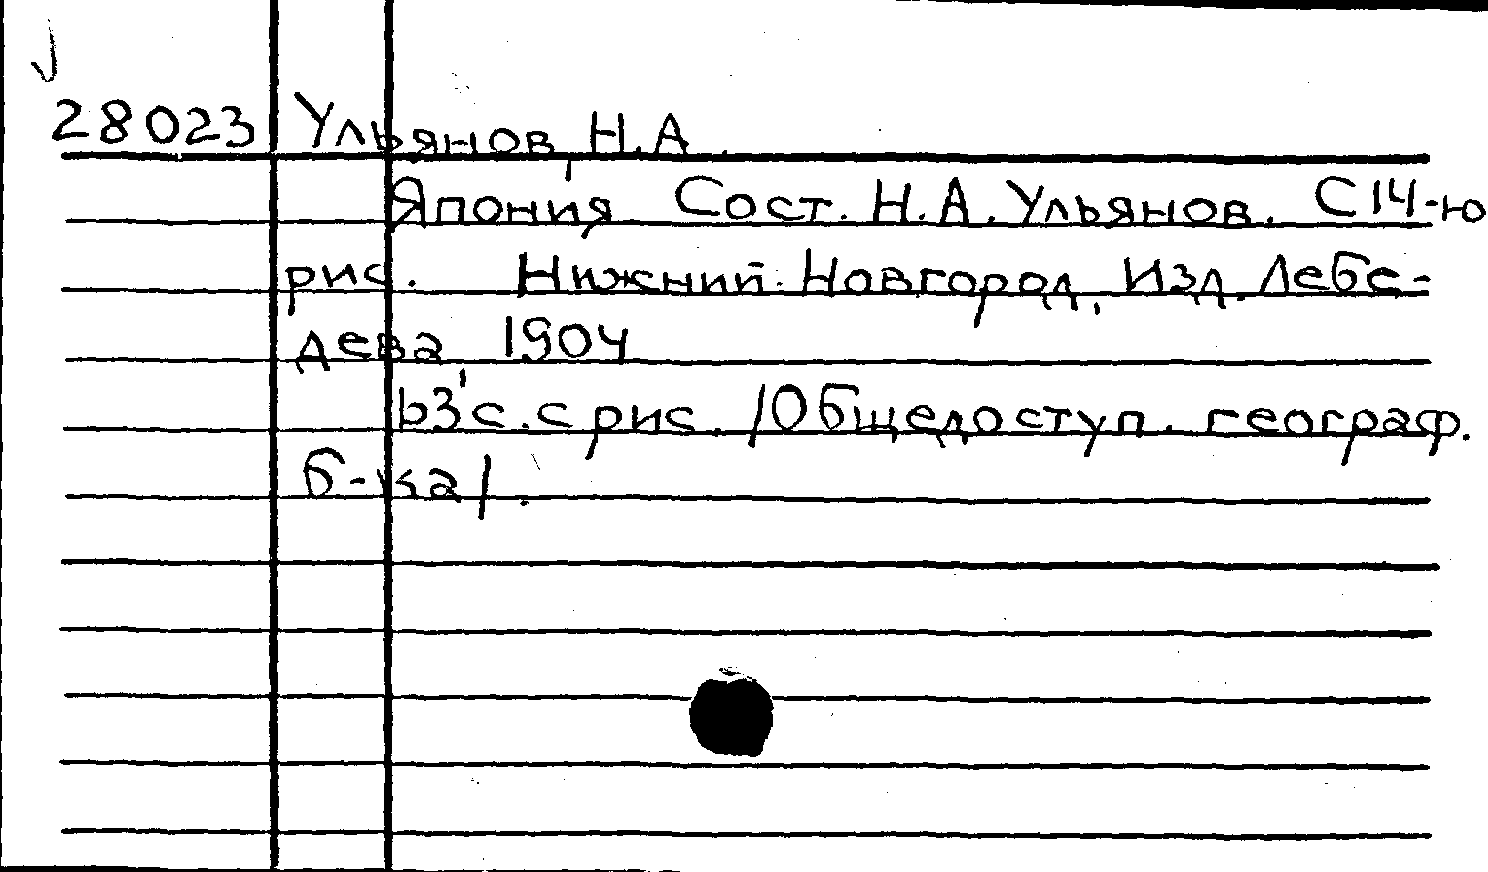 28023 Ульянов, Н.А.
Япония Сост. Н.А. Ульянов. С 14-ю
рис. Нижний-Новгород, Изд. Лебе-
дева, 1904
63 с. с рис. /Общедоступ. географ.
б-ка/.